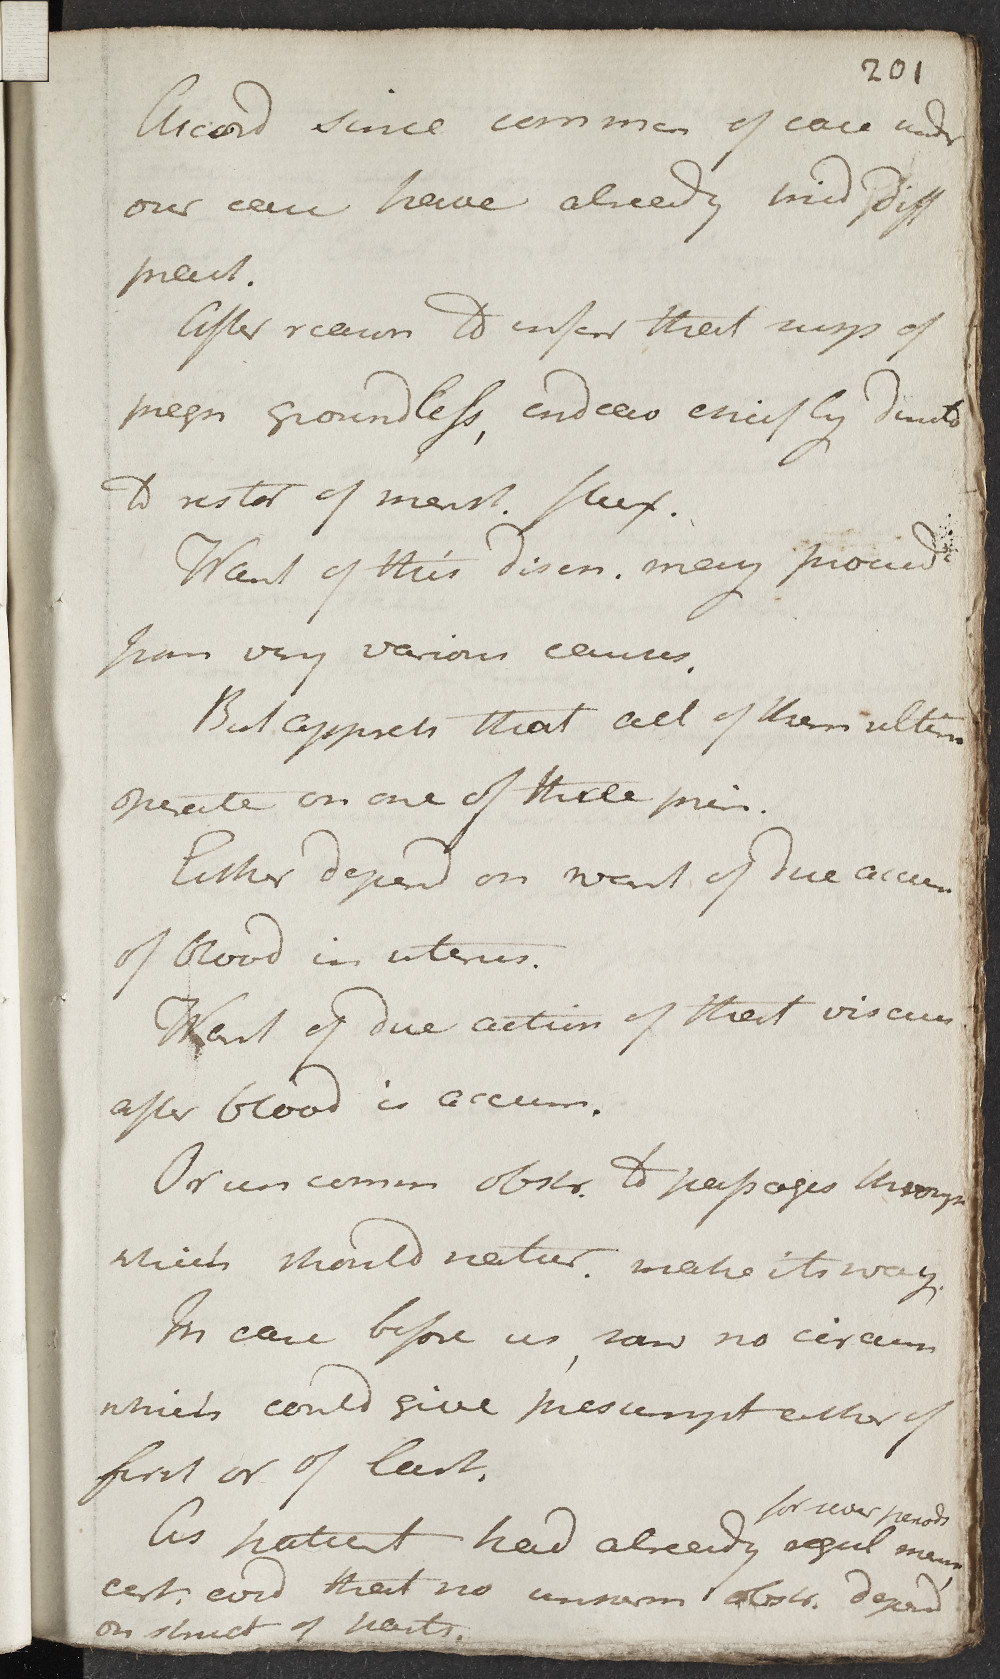 201
Accord since commen of case under
our care have already tried diff
pract.
After reason to infer that susp of
pregn groundless, endeav chiefly direct
to restor of menst. flux.
Want of this disch. may proceed
from very various causes.
But appreh that all of them ultim
operate on one of three prin.
Either depend on want of due accum
of blood in uterus.
Want of due action of that viscus
after blood is accum.
Or uncomm obstr. to passages through
which should natur. make its way.
In case before us, saw no circum
which could give presumpt either of
first or of last.
for sever periods
As patient had already regul menst,
cert. evid that no obstr. depend
on struct of parts.